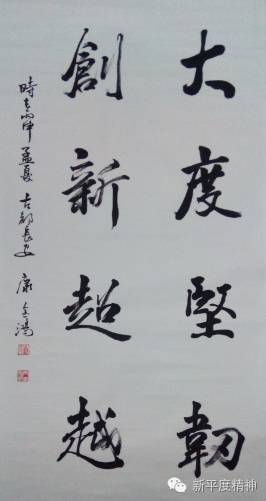 大度堅韌
創新超越
時在丙申孟夏古都長安 康
新平度精神